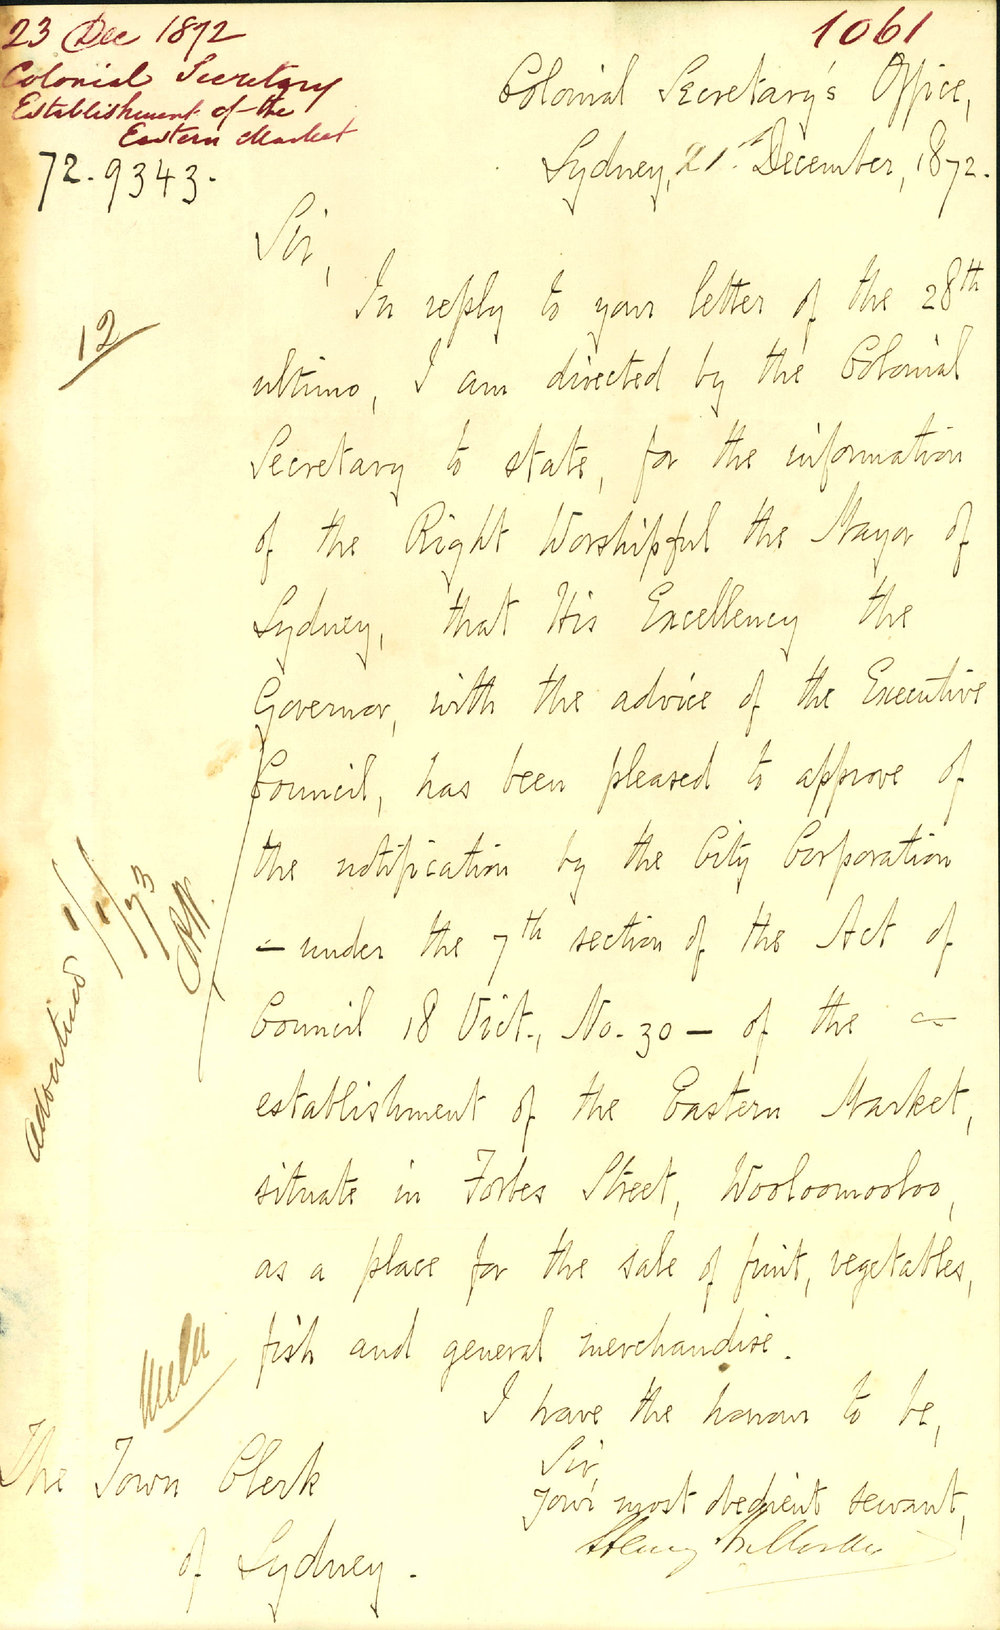 23 Dec 1872
Colonial Secretary
Establishment of the
Eastern Market
72-9343.
1061
Colonial Secretary's Office,
Sydney, 21st December, 1872.
Sir,
In reply to your letter of the 28th
ultimo, I am directed by the Colonial
Secretary to state, for the information
of the Right Worshipful the Mayor of
Sydney, that His Excellency the
Governor, with the advice of the Executive
Council, has been pleased to approve of
the notification by the City Corporation
- under the 7th section of the Act of
Council 18 Vict., No. 30 - of the -
establishment of the Eastern Market,
situate in Forbes Street, Wooloomooloo,
as a place for the sale of fruit, vegetables,
fish and general merchandise.
I have the honour to be,
Sir,
Your most obedient servant,
Henry
The Town Clerk
of Sydney.
12
Advertised 1/1/73